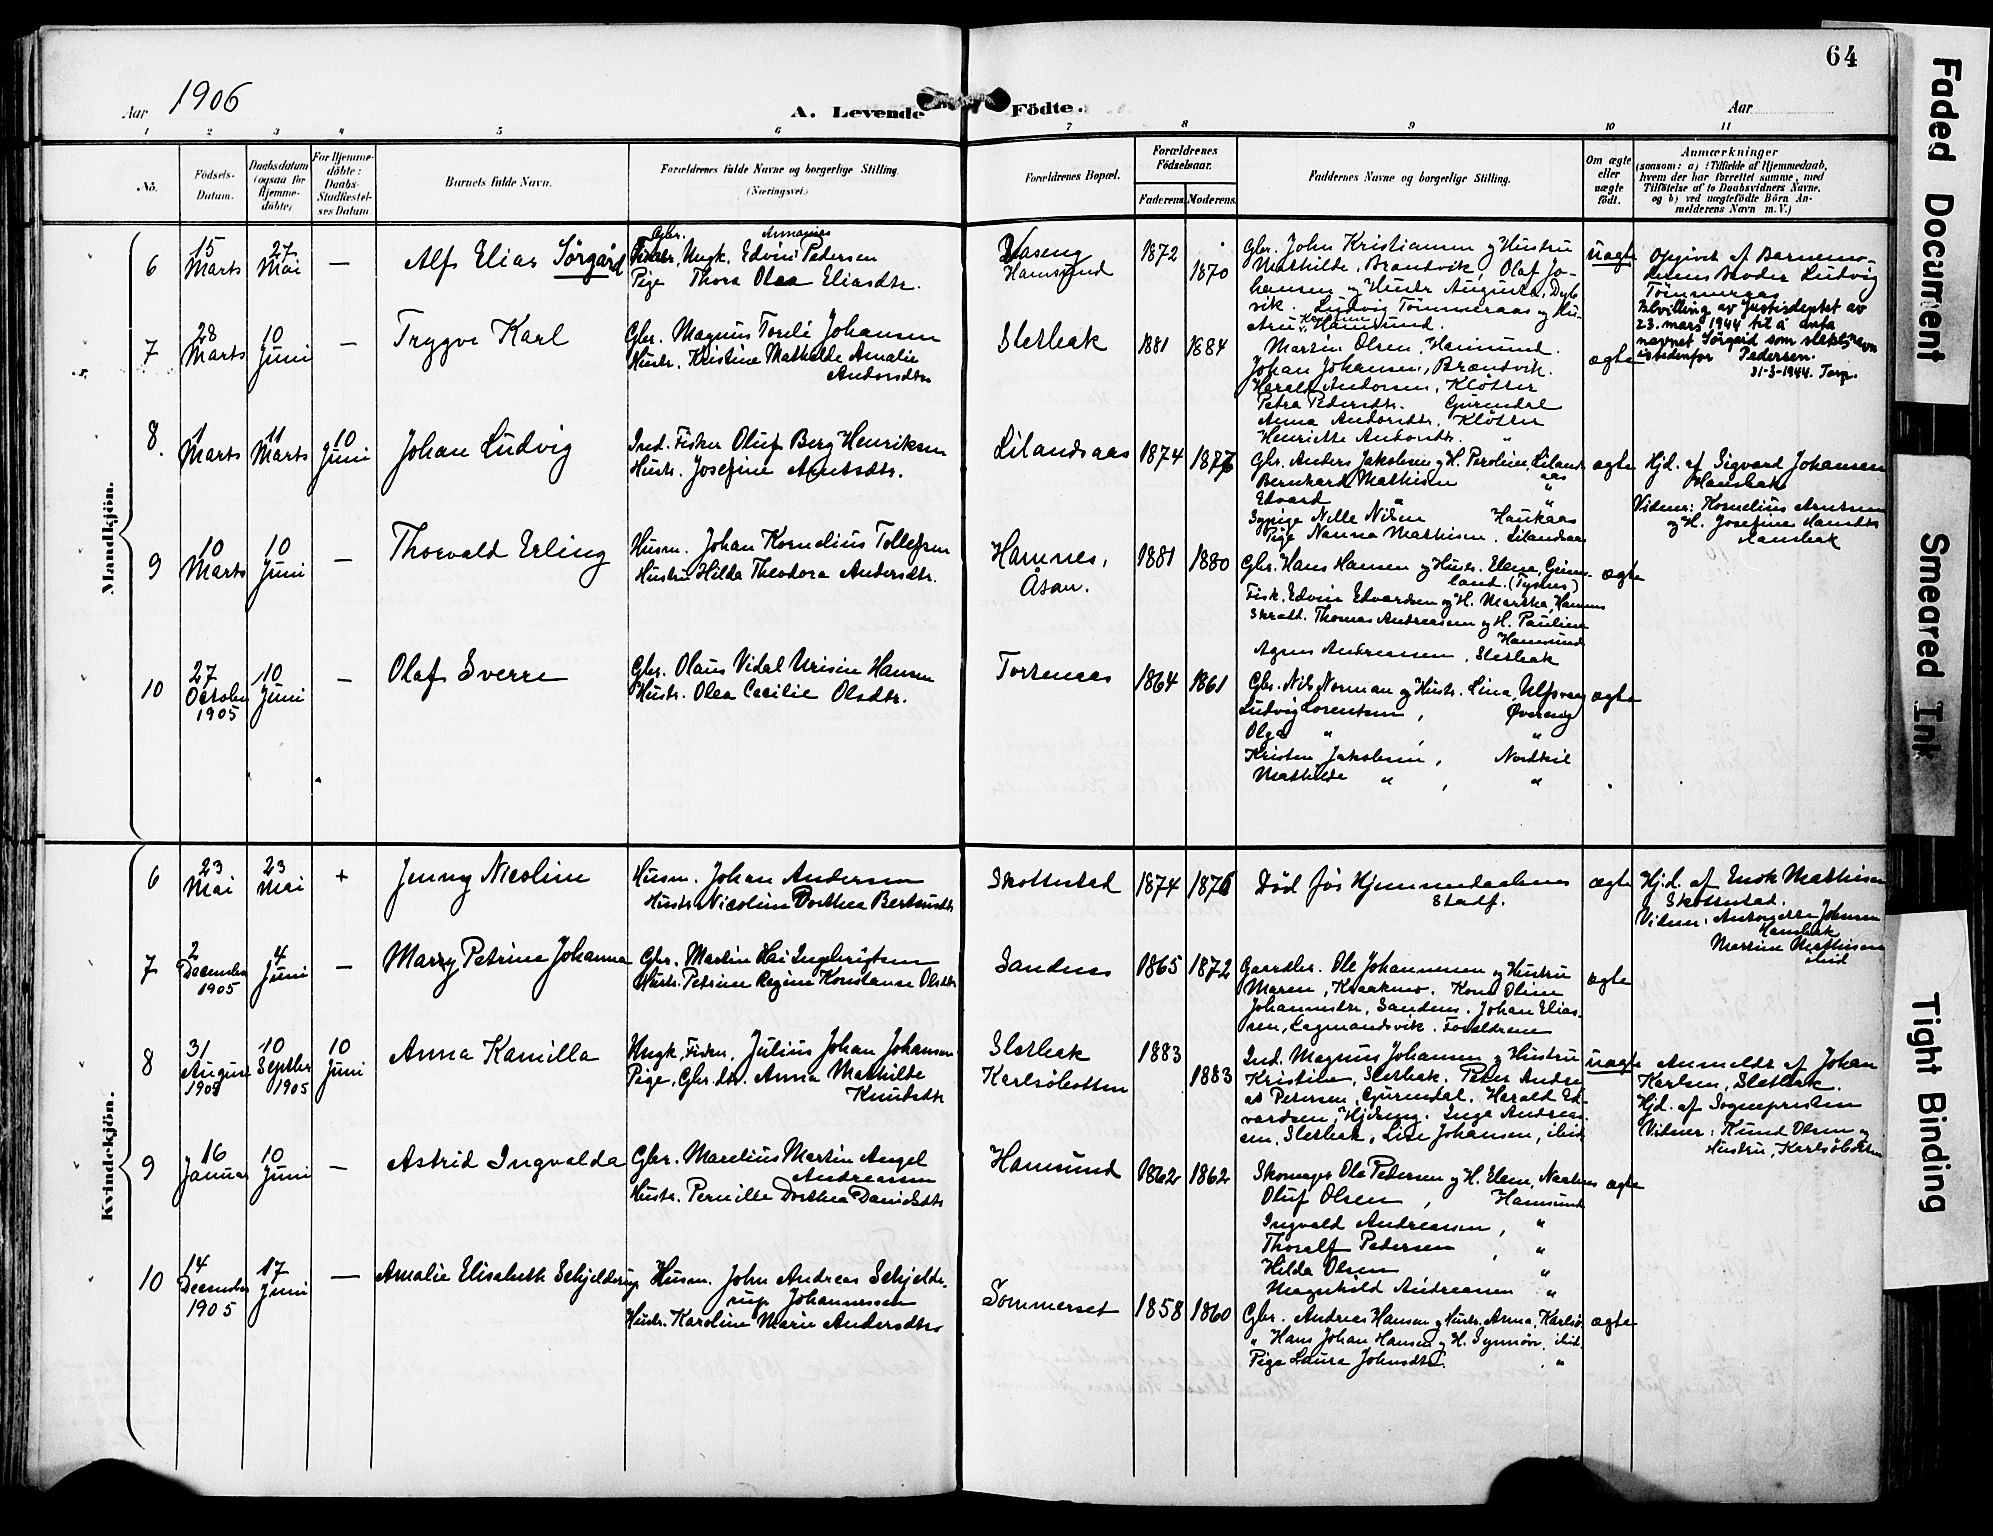 64
Aar 1906
A. Levende Födte.
Aar
1 2 3 4 5 6 7 8 9 10 11
No.
Födsels-Datum.
Daabsdatum (ogsaa for Hjemme-döbte)
For Hjemme-döbte: Daabs-Stadfæstel-ses Datum
Barnets fulde Navn.
Forældrenes fulde Navne og borgerlige Stilling. (Næringsvei.)
Forældrenes Bopæl.
Forældrenes Födselsaar.
Faderens. Moderens.
Faddernes Navne og borgerlige Stilling.
Om ægte eller uægte födt.
Anmærkninger
(saasom: a) i Tilfælde af Hjemmedaab,
hvem der har forrettet samme, med
Tilföielse af to Daabsvidners Navne,
og b) ved uægtefödte Börn An-
melderens Navn m. V.)
Mandkjön.
6
15 Marts
27 Mai
—
Alf Elias Sørgård
Gbr. Ungk. Edvin Pedersen
Pige Thora Olea Eliasdtr.
Hamsund
1872
1870
Gbr. John Kristiansen og Hustru
Mathilde, Brandvik, Olaf Jo-
hansen og Hustr Augusta, Dyb
vik. Ludvig Tömmeraas og Hu-
stru Hamsund.
uægte
Opgivet af Barnemo-
derens Broder Ludvig
Tömmeraas
Bevilling av Justisdeptet av
23. mars 1944 til å anta
navnet Sørgård som slektsnavn
istedenfor Pedersen.
31-3-1944. Torp.
7
28 Marts
10 Juni
—
Trygve Karl
Gbr. Magnus Torele Johansen
Hustr. Kristine Mathilde Amalie
Andorsdtr
Sletbak
1881
1884
Martin Olsen, Hamsund.
Johan Johansen, Brandvik.
Harald Andorsen, Klötter
Petra Pedersdtr. Gurendal
Anna Andorsdtr, Klötter
Henriette Andorsdtr. "
ægte
8.
1 Marts
11 Marts
10 Juni
Johan Ludvig
Ind. Fisker Oluf Berg Henriksen
Hustr. Josefine Arntsdtr.
Lilandsaas
1874
1877
Gbr. Anders Jakobsen og H. Peroline, Liland
aas
Bernhard Mathisen "
Edvard " "
Sypige Nelle Nilsen Haukaas
Pige Nanna Mathisen, Lilandsaas
ægte
Hjd. af Sigvard Johansen
Hansbak
Vidner: Kornelius Arntsen
og H. Josefine Hansdtr
9
10 Marts
10 Juni
—
Thorvald Erling
Husm. Johan Kornelius Tollefsen
Hustru Hilda Theodora Andersdtr.
Hamnes,
Åsan.
1881
1880
Gbr. Hans Hansen og Hustr. Elena, Grims-
land. (Tysnes)
Fisk. Edvin Edvardsen og H. Martha, Hamnes
Skrædr. Thomas Andreassen og H. Pauline
Hamsund
Agnes Andreassen, Sletbak
ægte
10
27 October 1905
10 Juni
—
Olaf Sverre
Gbr. Olaus Vidal Ursin Hansen
Hustr. Olea Cecilie Olsdtr.
Tortenes
1864
1861
Gbr. Nils Norman og Hustr. Lina, Ulfsvaag
Ludvig Lorentsen, Övereng
Olga " , "
Kristen Jakobsen, Nordkil
Mathilde " , "
ægte
Kvindekjön.
6
23 Mai
23 Mai
+
Jenny Nicoline
Husm. Johan Andersen
Hustr. Nicoline Dorthea Bertheusdtr
Skottestad
1874
1876
Död för Hjemmedaabens
Stadf.
ægte
Hjd. af Enok Mathisen
Skottestad.
Vidner: Antonette Johnsen
Hansbak
Martine Mathisen
ibid
7
2 December 1905
4 Juni
—
Marry Petrine Johanna
Gbr. Martin Hai Ingebrigtsen
Hustr. Petrine Regine Konstanse Olsdtr
Sandnes
1865
1872
Gaardbr. Ole Johannesen og Hustru
Maren, Kraakmo. Kone Oline
Johannesdtr, Sandnes. Johan Elias-
sen, Lagmandsvik. Forældrene
ægte
8
31 August 1905
10 Septbr 1905
10 Juni
Anna Kamilla
Ungk. Fisker. Julius Johan Johansen
Pige, Gbr.dtr. Anna Mathilde
Knutsdtr
Sletbak
Karlsöbotten
1883
1883
Ind. Magnus Johansen og Hustru
Kristine, Sletbak. Peter Andre
as Petersen, Gurendal. Harald Ed-
vardsen, Hjelseng. Inga Andreas-
sen, Sletbak, Lise Johansen, ibid
uægte
Anmeldt af Johan
Karlsen, Sletbak.
Hjd. af Sognepresten
Vidner: Knud Olsen og
Hustru, Karlsöbotten
9
16 Januar
10 Juni
—
Astrid Ingvalda
Gbr. Marelius Martin Angel
Andreassen
Hustr. Pernille Dorthea Danielsdtr
Hamsund
1862
1862
Skomager Ole Pedersen og H. Elene, Naatenes
Oluf Olsen, Hamsund
Ingvald Andreassen, "
Thoralf Pedersen, "
Hilda Olsen "
Magnhild Andreassen "
ægte
10
14 December 1905
17 Juni
—
Amalie Elisabeth Schjelderup
Husm. John Andreas Schjelde-
rup Johannessen
Hustr. Karoline Marie Andersdtr.
Sommerset
1858
1860
Gbr. Andreas Hansen og Hustr. Anna, Karlsö
" Hans Johan Hansen og H. Synnöv, ibid.
Pige Laura Johnsdtr. "
ægte
Faded Document
Smeared Ink
Tight Binding